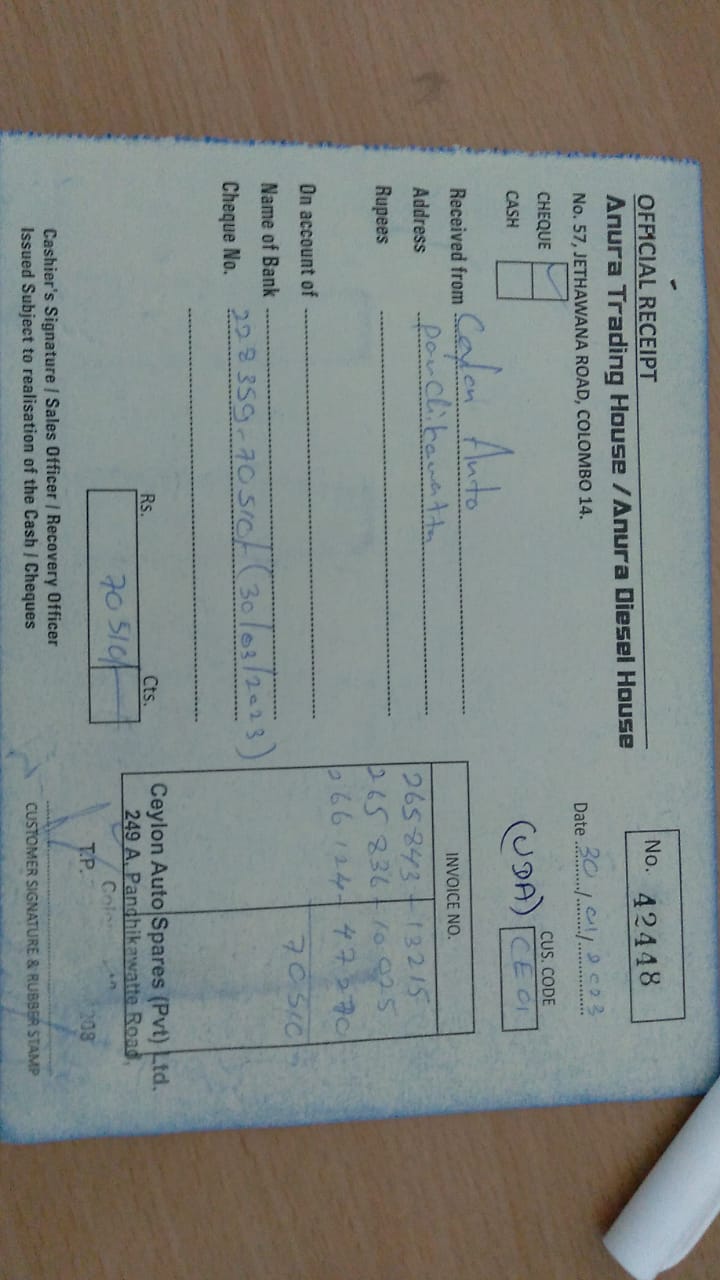 OFFICIAL RECEIPT
Anura Trading House / Anura Diesel House
No. 57, JETHAWANA ROAD, COLOMBO 14.
No. 42448
Date 30/01/2023
CHEQUE ✓
CASH
(UDA)
CUS. CODE
CE01
Received from Ceylon Auto
Address Panchikawatta
Rupees
On account of
Name of Bank
Cheque No. 228359-70510/- (30/03/2023)
INVOICE NO.
265843 - 13215
265836 - 10025
266124 - 47270
70510
Rs. Cts.
70510/-
Ceylon Auto Spares (Pvt) Ltd.
249 A, Panchikawatte Road,
T.P.
Cashier's Signature / Sales Officer / Recovery Officer
Issued Subject to realisation of the Cash / Cheques
CUSTOMER SIGNATURE & RUBBER STAMP